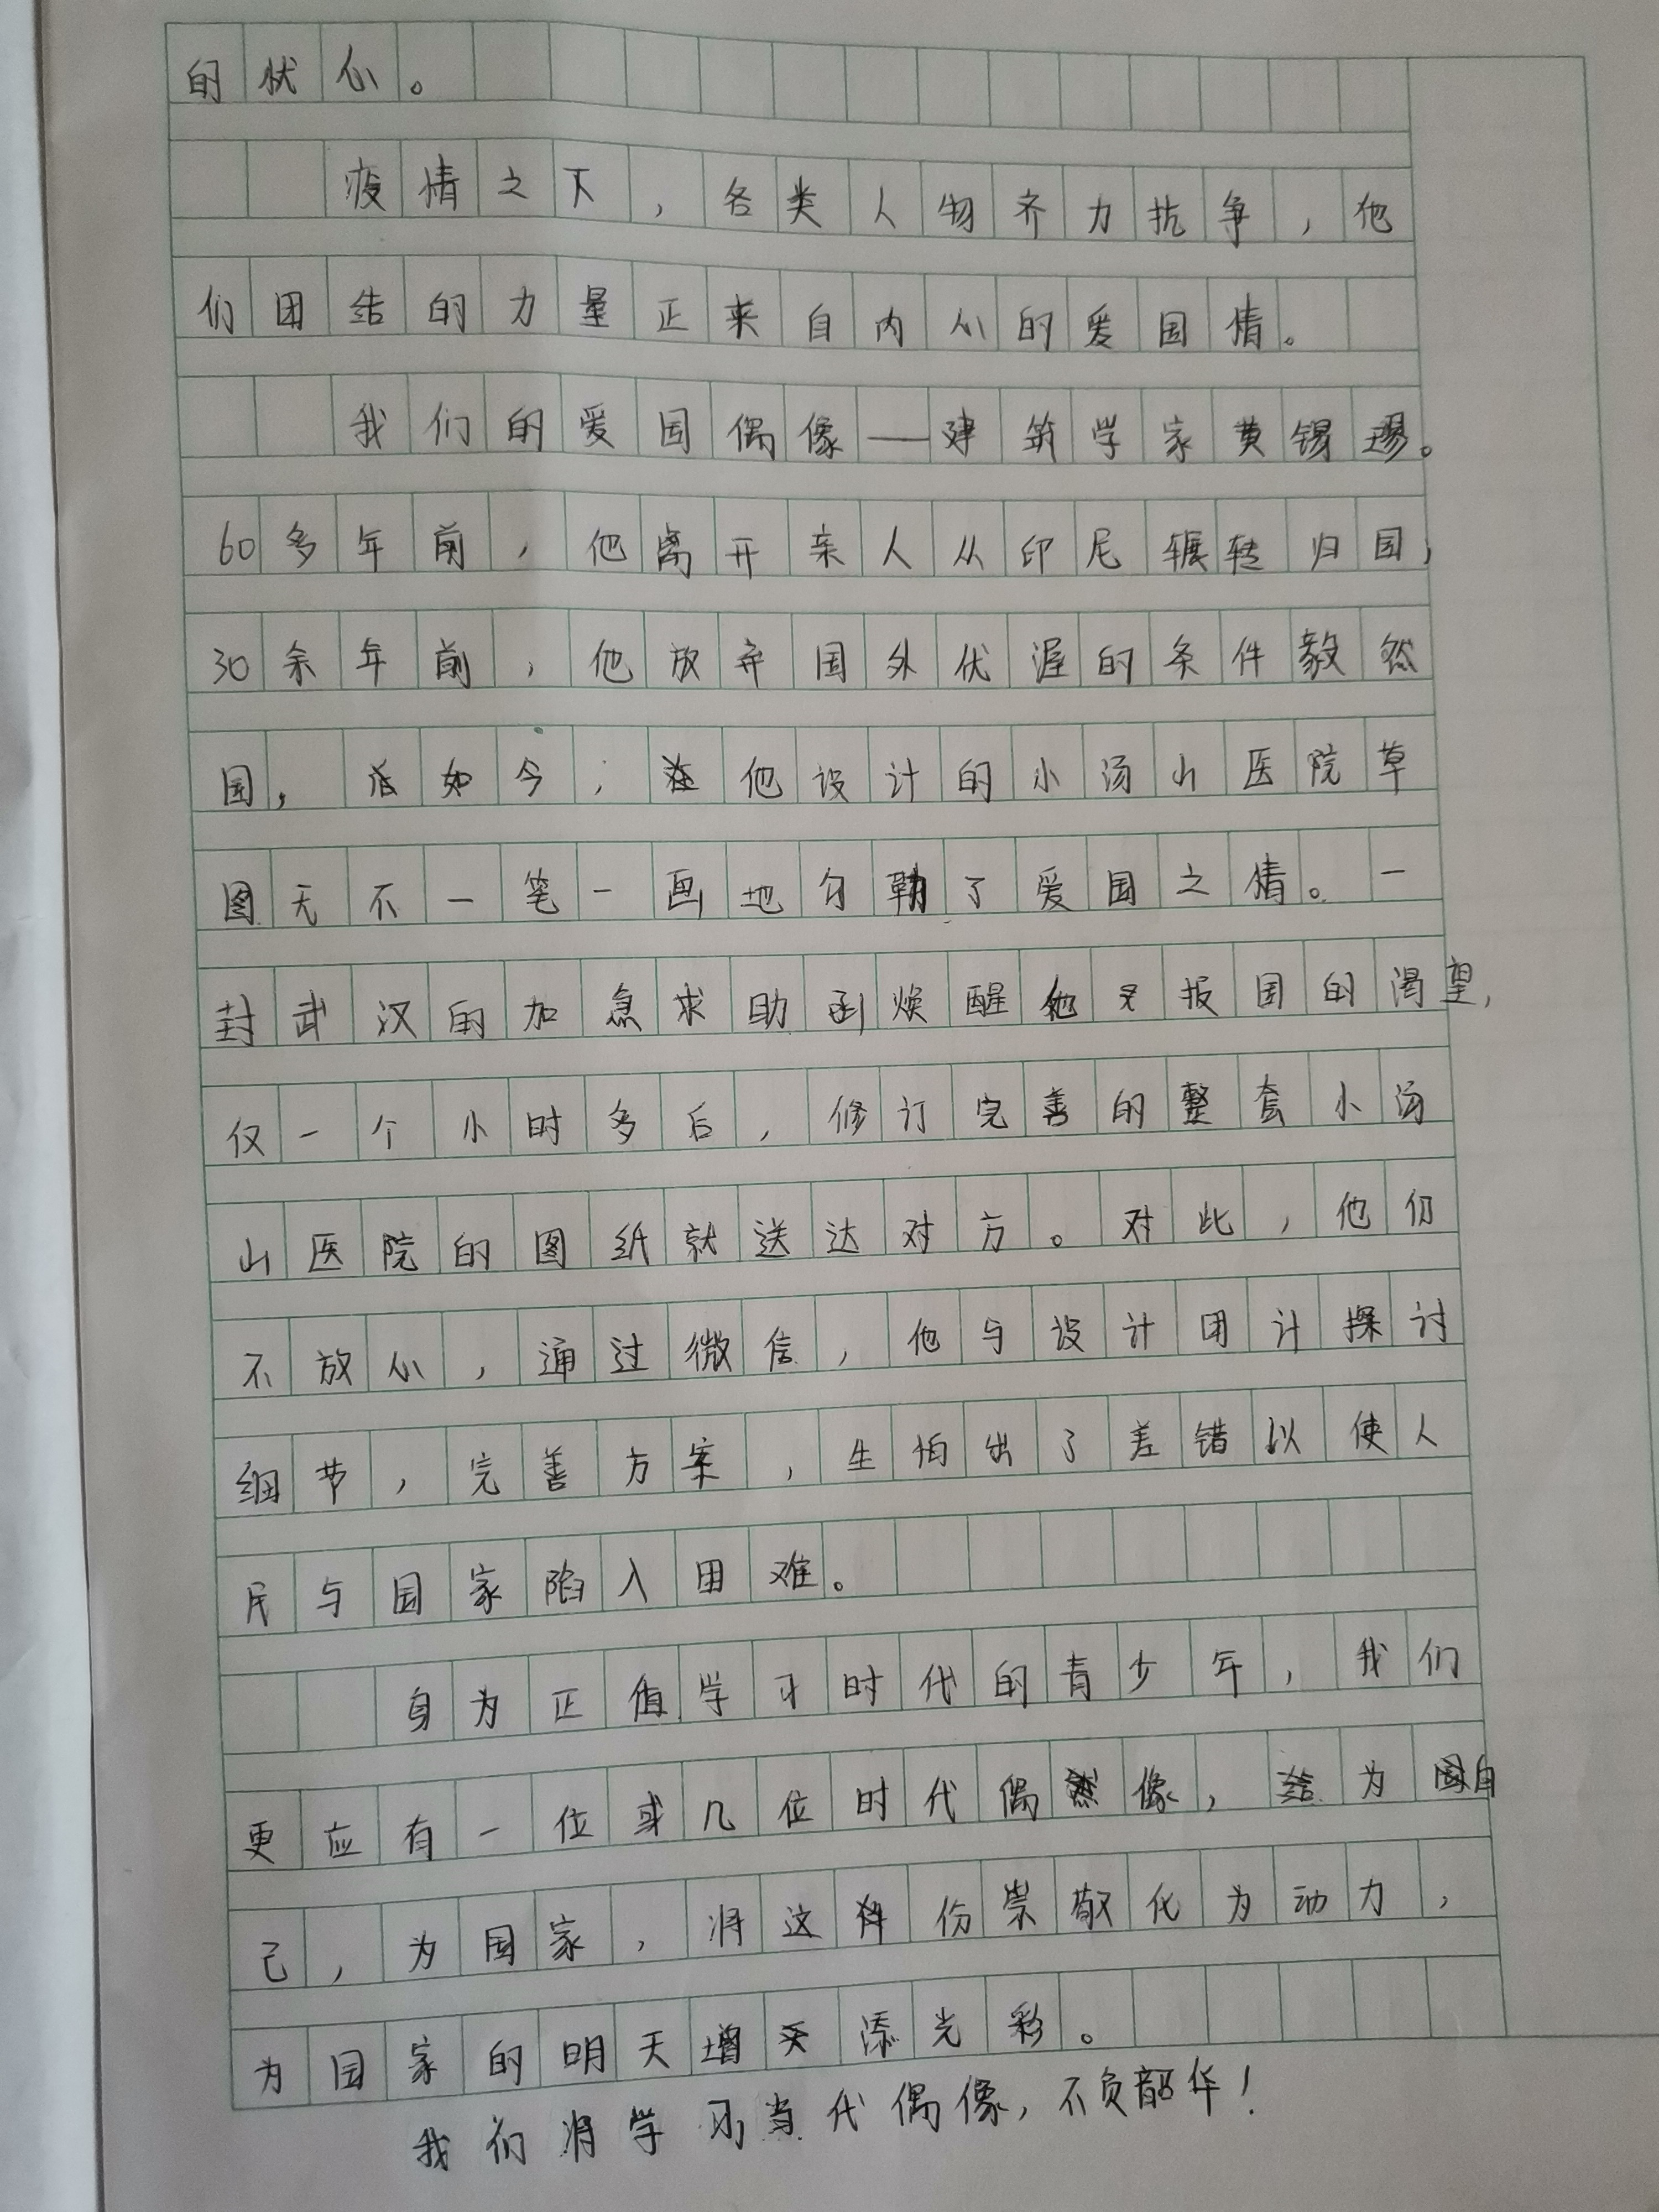 的状心。
疫情之下，各类人物齐力抗争，他
们团结的力量正来自内心的爱国情。
我们的爱国偶像——建筑学家黄锡璆。
60多年前，他离开亲人从印尼辗转归国，
30余年前，他放弃国外优渥的条件毅然
国，如今，他设计的小汤山医院草
图无不一笔一画地勾勒了爱国之情。一
封武汉的加急求助函焕醒他又报国的渴望，
仅一个小时多后，修订完善的整套小汤
山医院的图纸就送达对方。对此，他仍
不放心，通过微信，他与设计团计探讨
细节，完善方案，生怕出了差错以使人
民与国家陷入困难。
身为正值学习时代的青少年，我们
更应有一位或几位时代偶像，为自
己，为国家，将这份崇敬化为动力，
为国家的明天增添光彩。
我们将学习当代偶像，不负韶华！